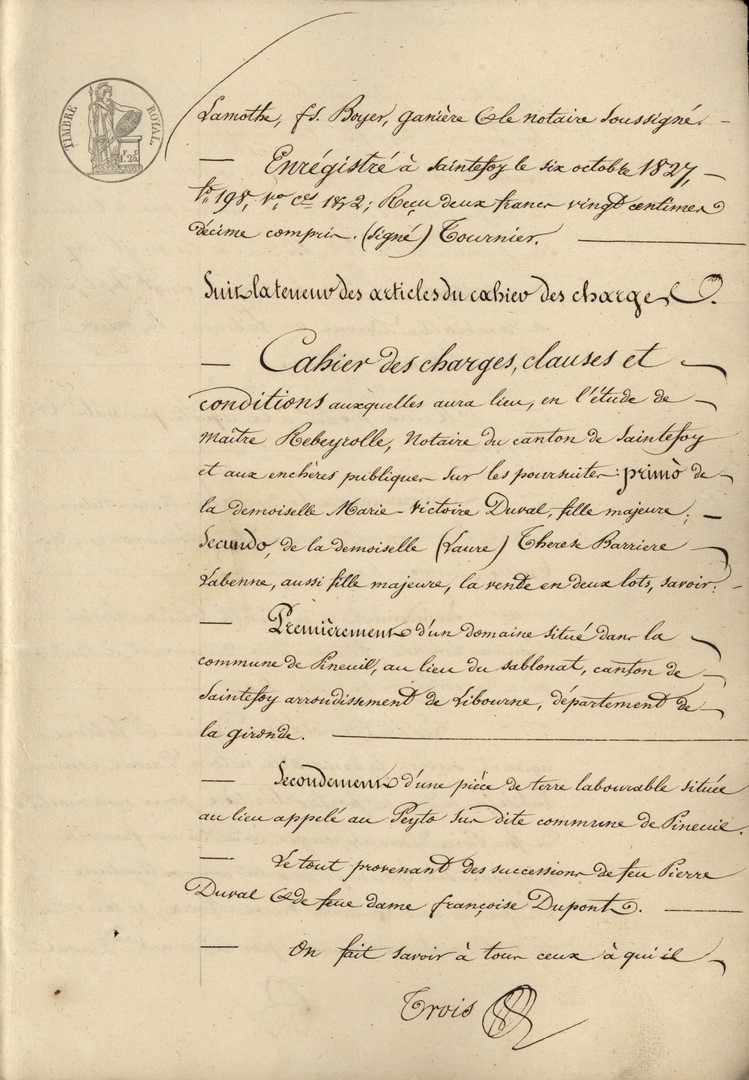 TIMBRE ROYAL.
1.F 25.C
Lamothe, fs. Boyer, ganière & le notaire soussigné. -
— Enrégistré à Saintefoy le six octobre 1827, -
fo. 198, vo. ces 1 & 2; Reçu deux francs vingt centimes
décime compris. (signé) Tournier. —
Suit la teneur des articles du cahier des charges.
— Cahier des charges, clauses et -
conditions auxquelles aura lieu, en l'étude de -
Maître Rebeyrolle, Notaire du canton de Saintefoy
et aux enchères publiques sur les poursuites: primò de -
la demoiselle Marie-Victoire Duval, fille majeure; -
Secundo, de la demoiselle (Laure) Therese Barriere -
Labenne, aussi fille majeure, la vente en deux lots, savoir: -
— Premièrement d'un domaine situé dans la -
commune de Pineuil, au lieu du sablonat, canton de -
Saintefoy arrondissement de Libourne, département de -
la gironde. —
— Secondement d'une pièce de terre labourable située
au lieu appelé au Peyto sur dite commune de Pineuil.
— Le tout provenant des successions de feu Pierre
Duval & de feue dame françoise Dupont. —
— On fait savoir à tous ceux à qui il -
Trois